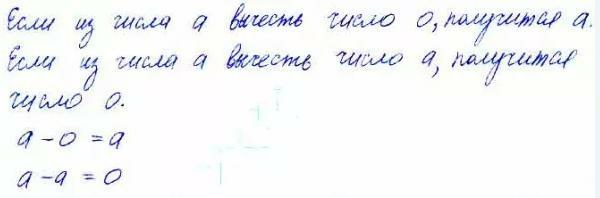 Если из числа а вычесть число 0, получится а.
Если из числа а вычесть число а, получится
число 0.
а - 0 = а
а - а = 0